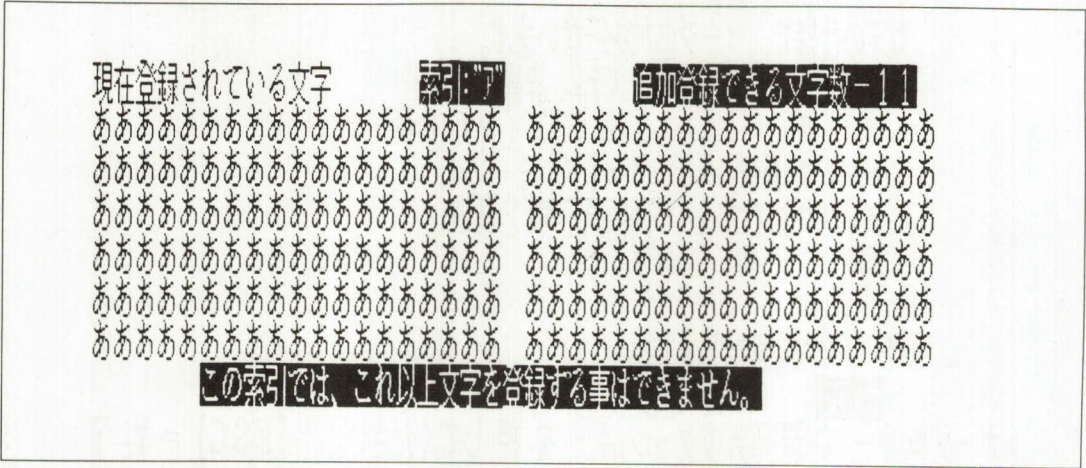 現在登録されている文字 索引:"ア" 追加登録できる文字数－１１
あああああああああああああああああああ あああああああああああああああああああ
あああああああああああああああああああ あああああああああああああああああああ
あああああああああああああああああああ あああああああああああああああああああ
あああああああああああああああああああ あああああああああああああああああああ
あああああああああああああああああああ あああああああああああああああああああ
あああああああああああああああああああ あああああああああああああああああああ
この索引では、これ以上文字を登録する事はできません。